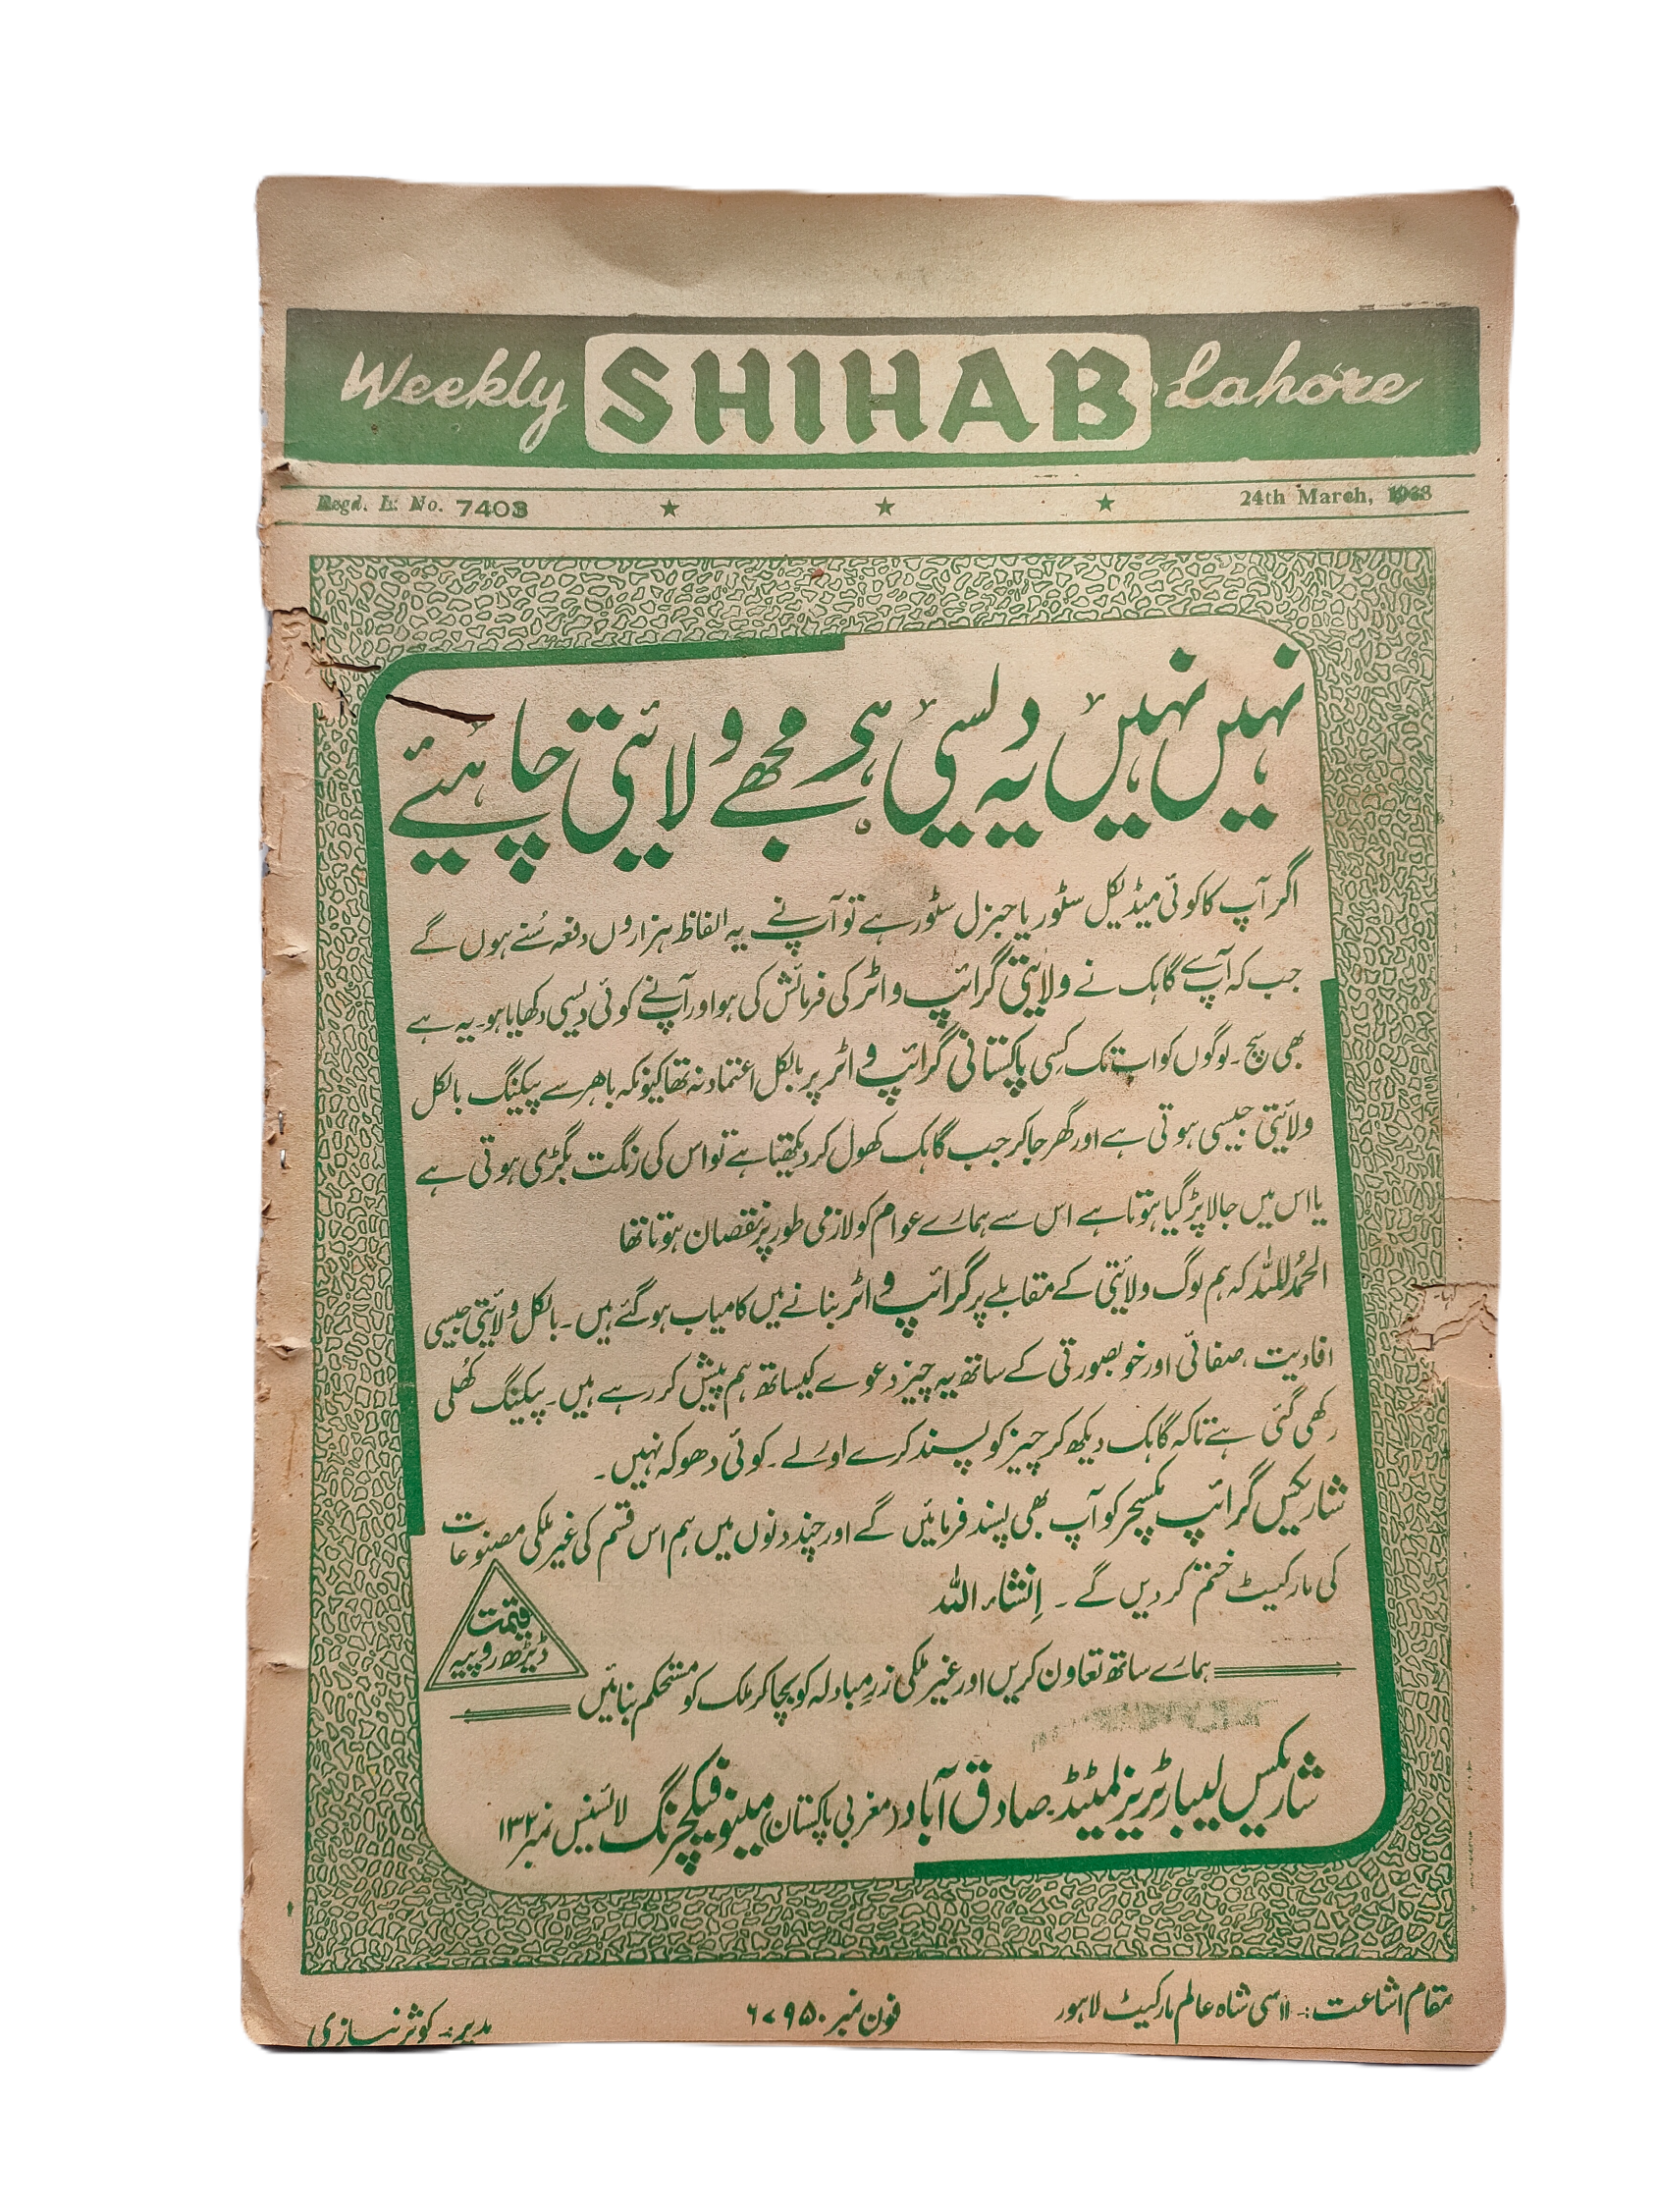 Weekly SHIHAB Lahore
Regd. L. No. 7403 24th March, 1963
نہیں نہیں یہ دیسی ہے مجھے ولائیتی چاہئیے
اگر آپ کا کوئی میڈیکل سٹور یا جنرل سٹور ہے تو آپ نے یہ الفاظ ہزاروں دفعہ سُنے ہوں گے
جب کہ آپ سے گاہک نے ولائیتی گرائپ واٹر کی فرمائش کی ہو اور آپ نے کوئی دیسی دکھایا ہو۔ یہ ہے
بھی سچ۔ لوگوں کو اب تک کسی پاکستانی گرائپ واٹر پر بالکل اعتماد نہ تھا کیونکہ باہر سے پیکنگ بالکل
ولائیتی جیسی ہوتی ہے اور گھر جا کر جب گاہک کھول کر دیکھتا ہے تو اس کی رنگت بگڑی ہوتی ہے
یا اس میں جالا پڑ گیا ہوتا ہے اس سے ہمارے عوام کو لازمی طور پر نقصان ہوتا تھا
الحمدُللہ کہ ہم لوگ ولائیتی کے مقابلے پر گرائپ واٹر بنانے میں کامیاب ہو گئے ہیں۔ بالکل ولائیتی جیسی
افادیت، صفائی اور خوبصورتی کے ساتھ یہ چیز دعوے کیساتھ ہم پیش کر رہے ہیں۔ پیکنگ کھُلی
رکھی گئی ہے تاکہ گاہک دیکھ کر چیز کو پسند کرے اور لے۔ کوئی دھوکہ نہیں۔
شاریکس گرائپ مکسچر کو آپ بھی پسند فرمائیں گے اور چند دنوں میں ہم اس قسم کی غیر ملکی مصنوعات
کی مارکیٹ ختم کر دیں گے۔ اِنشاء اللہ
قیمت
ڈیڑھ روپیہ
ہمارے ساتھ تعاون کریں اور غیر ملکی زرِ مبادلہ کو بچا کر ملک کو مستحکم بنائیں
شاریکس لیبارٹریز لمیٹڈ۔ صادق آباد (مغربی پاکستان) مینوفیکچرنگ لائسنس نمبر ۱۳۲
مقام اشاعت:۔ ۱۱سی شاہ عالم مارکیٹ لاہور فون نمبر ۶۷۹۵۰ مدیر:۔ کوثر نیازی